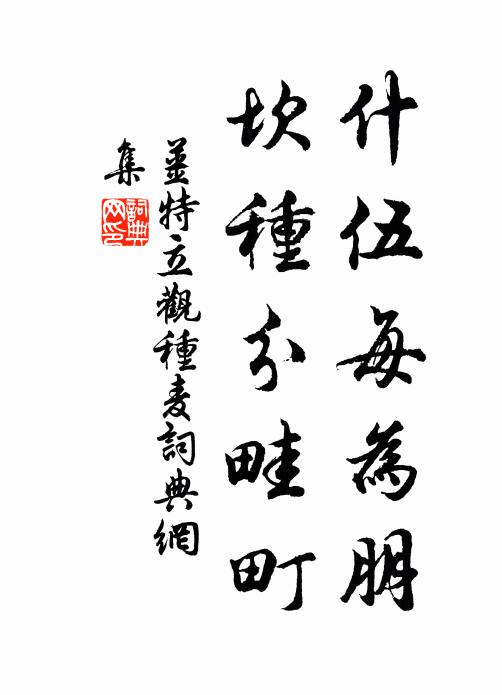 什伍每為朋
坎種分畦町
姜特立觀種麦詞典網
集
詞典
网印